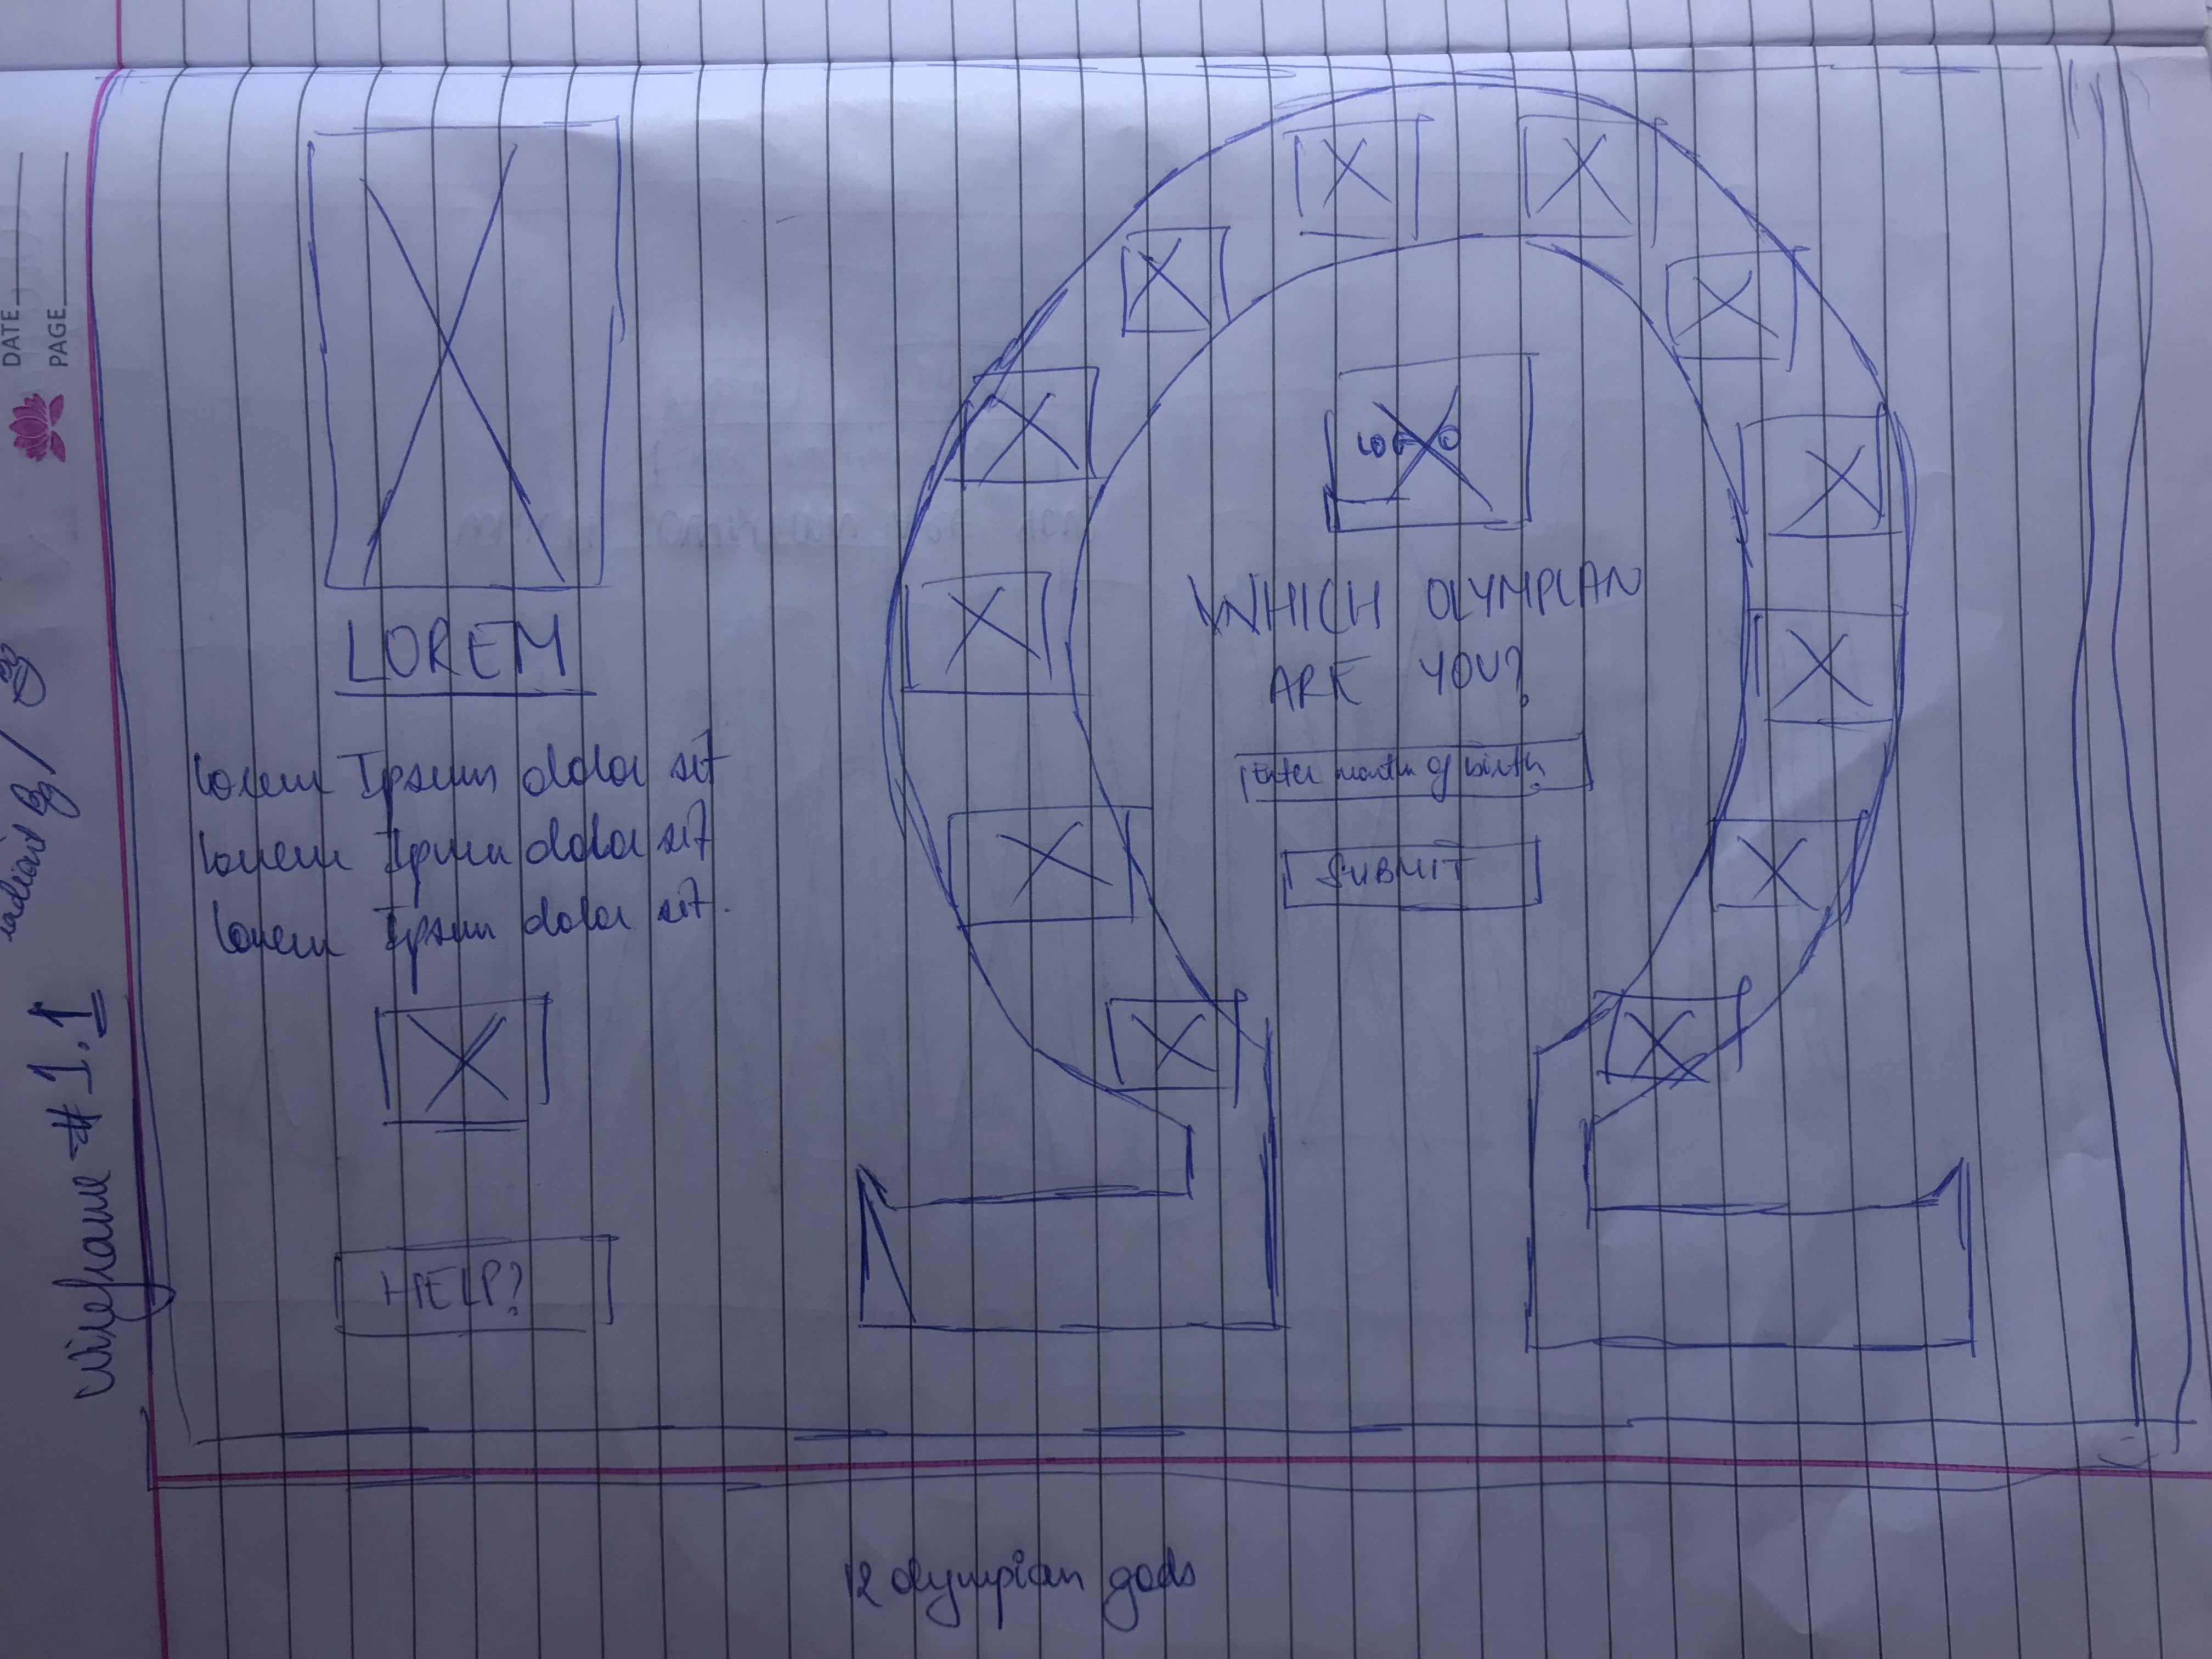 DATE
PAGE
Wireframe # 1.1
LOREM
Lorem Ipsum dolor sit
Lorem Ipsum dolor sit
Lorem Ipsum dolor sit.
HELP?
LOGO
WHICH OLYMPIAN
ARE YOU?
Enter month of birth
SUBMIT
12 olympian gods